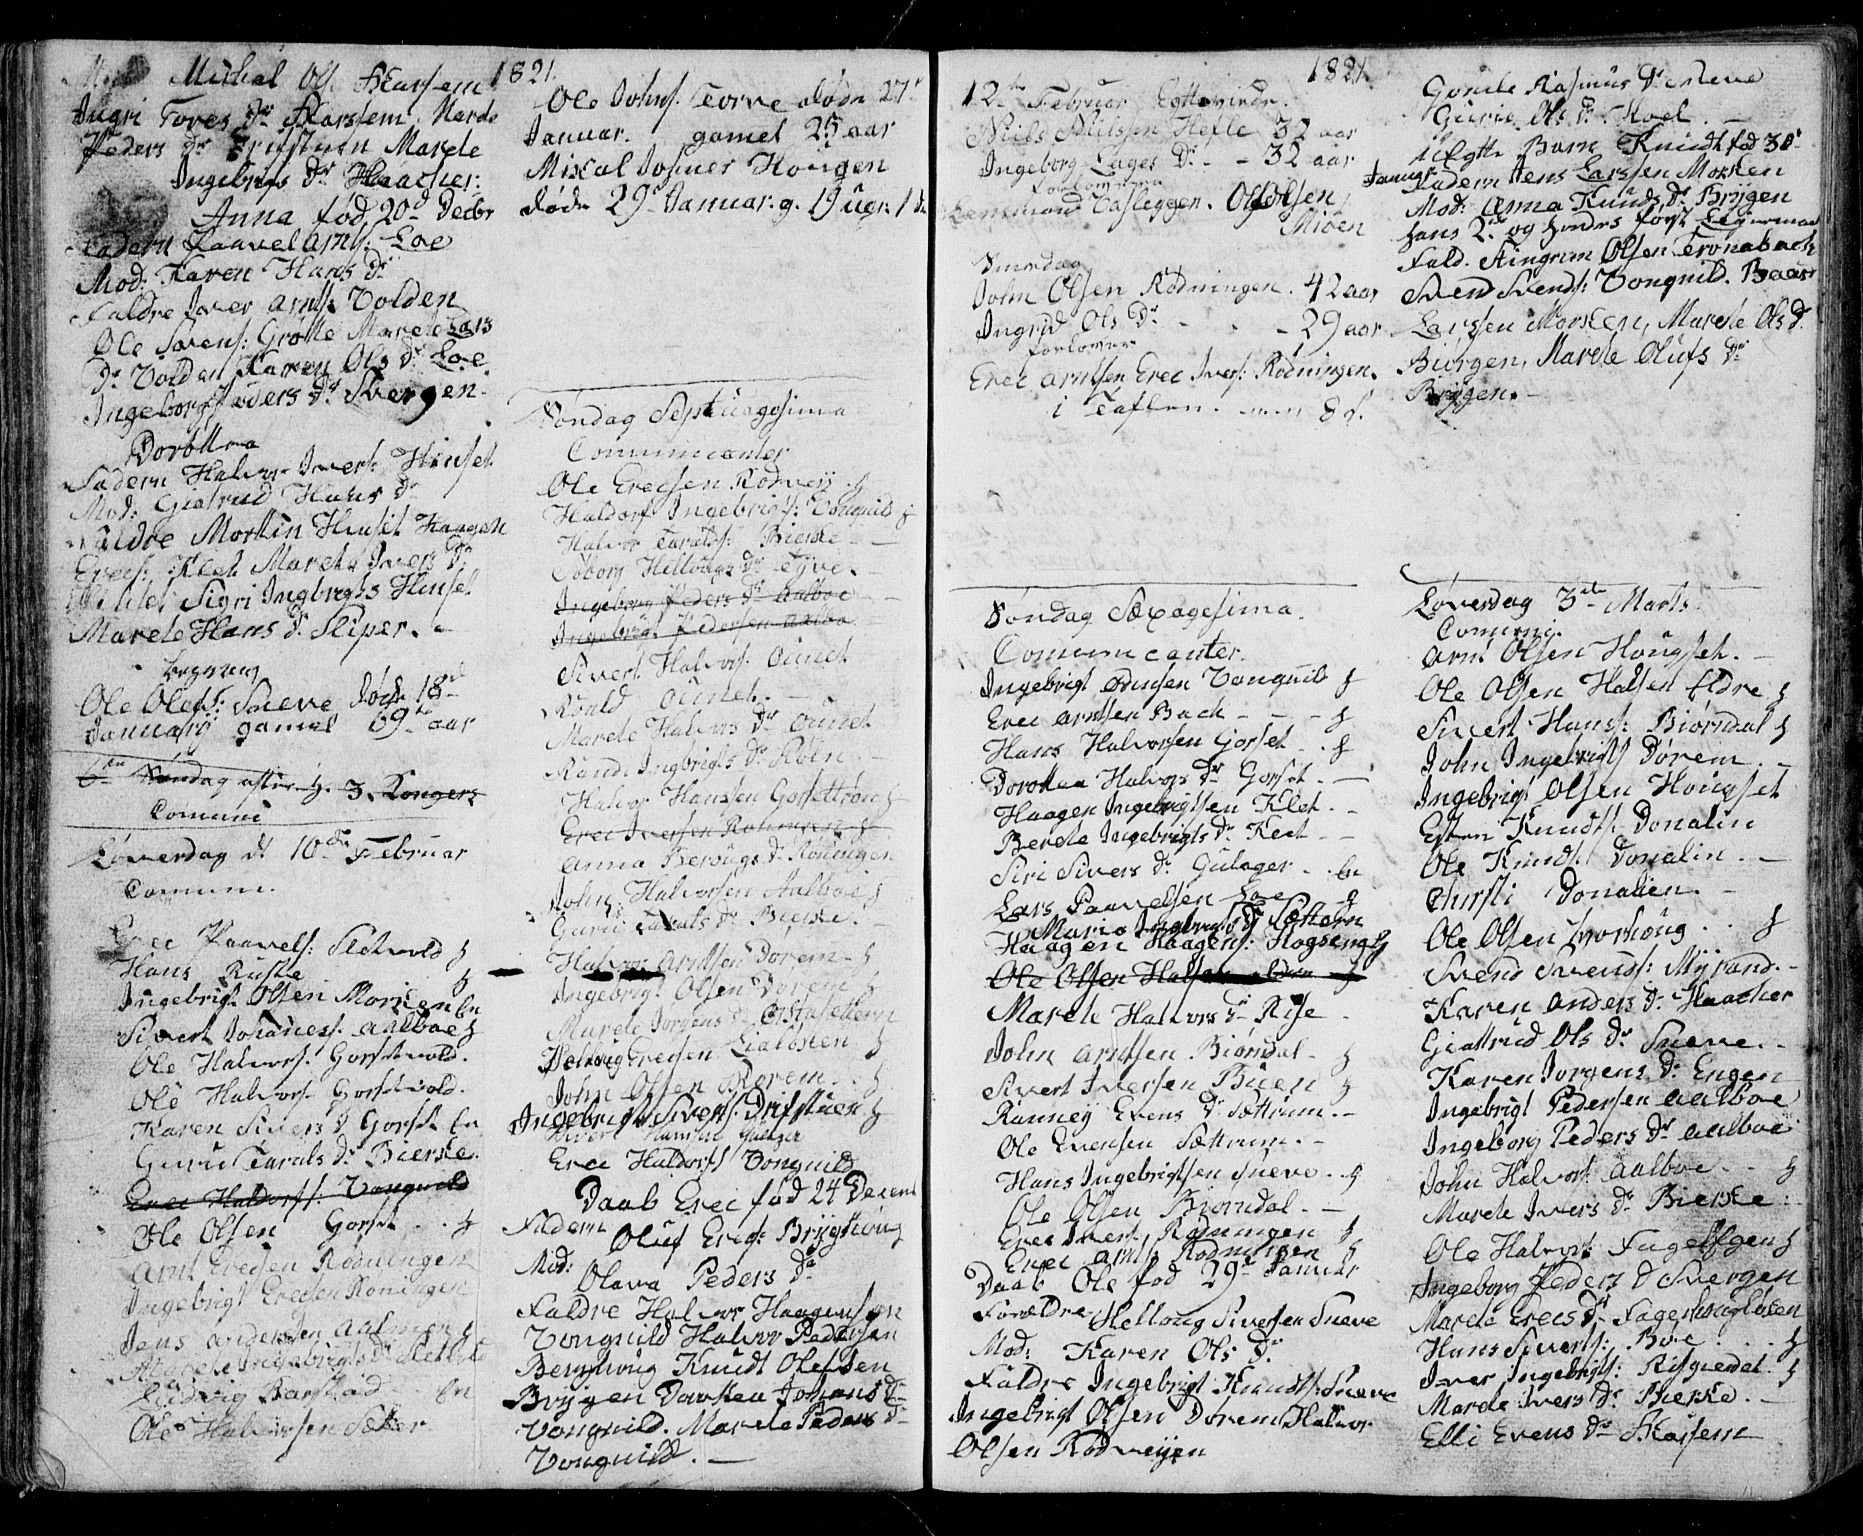 1821.
Michal Ols. Skarsem
Ingri Tores Dr Skarsem, Marete
Peders Dr Drifstuen Marete
Ingebrigs Dr Haacker:
Anna fød 20de Decbr
Faderen Paavel Arns: Loe
Mod: Karen Hans Dr
Faldre Iver Arnts: Volden
Ole Svens: Grotte Marete Lars
Dr Volden Karen Ols Dr Loe
Ingeborg Peders Dr Svergen.
Dorothea
Faderen Halvor Ivers: Hinset
Mod: Giertrud Hans Dr
Faldre Morten Hinset Haagen
Erecs: Klet Marete Ivers Dr
Hinset Sigri Ingbrigts Hinset
Marete Hans Dr Sliper.
Ole Olefs: Sneve døde 18de
Januarij gamel 69 aar
6te Søndag efter h. 3 Konger
Comuni
Løverdag d. 10de Februar
Comuni.
Erec Paavels: Sletvold
Hans Ruste
Ingebrigt Olsen Morken
Sivert Johanes: Aalboe
Ole Halvors. Gorsetvold.
Ole Halvors. Gorsetvold.
Karen Sivers D Gorset
Guru Taralds Dr Bierke.
Erec Haldorss: Vonguild
Ole Olsen Gorset
Arnt Erecsen Rødningen
Ingebrigt Erecsen Roningen
Jens Andersen Aalmen
Marete Ingebrigts Dr Sletvold
Ludvig Barstad
Ole Halvorsen Sæter
Ole Johns. Torve døde 27de
Januar. gamel 25 aar
Mical Johnes Hougen
døde 29de Januar. g. 19 ugr. 1 d.
Søndag Septuagesima
Comunicanter
Ole Erecsen Rodveij
Haldorf Ingebrigts: Vonguild
Halvor Taralds: Bierke
Toborg Hellougs Dr Tyve.
Ingeborg Peders Dr Aalboe
Ingebrigt Pedersen Aalbo
Sivert Halvors. Ounet
Roald Ounet.
Marete Halvors Dr Ounet
Randi Ingbrigts Dr Roen
Halvor Hanssen Gorsettrøen
Erec Iversen Rønningen
Anna Berougs Dr Rødningen
John Halvorsen Aalboe
Guru Taralds Dr Bierke.
Halvor Arntsen Dørem
Ingebrigt Olsen Dørem
Marete Jorgens Dr
Helloug Erecsen Lialøkken
John Olsen Dørem
Ingebrigt Siverts: Drifstuen
Erec Haldorss Vonguild
Daab Erec fød 24 Decem
Fadern Oluf Erecs: Bryghoug
Mod: Olava Peders Dr
Faldre Halvor Haagensen
Vonguild Halvor Pedersen
Berghoug Knudt Olefsen
Brygen Dorthea Johans Dr
Vonguild. Marete Peders Dr
Vonguild.
1821.
12te Februar Egteviede.
Niels Nilssen Hefle 32 aar
Ingeborg Lages Dr - 32 aar
forlovere
Lensmand Vasleggen. Ole Olsen
Mioen
Onsdag
John Olsen Rødningen. 42 aar
Ingrid Ols Dr - 29 aar
forlovere
Erec Arntsen Erec Ivers: Rødningen.
i Taflen
Søndag Sexagesima.
Comunicanter.
Ingebrigt Orinsen Vonguild
Erec Arntsen Bach
Hans Halvorsen Gorset
Dorothea Halvors Dr Gorset.
Haagen Ingebrigtsen Klet.
Berete Ingebrigts Dr Klet
Siri Sivers Dr Gulager
Lars Paavelsen Loe
Maria Ingbrigts Dr Sættern
Haagen Haagens: Hogseng
Ole Olsen Halsen eldre
Marete Halvors Dr Rise
John Arntsen Biørndal
Sivert Iversen Buen
Ranney Evens Dr Sættrum.
Ole Evensen Sættrum.
Hans Ingebrigtsen Sneve
Ole Olsen Biørndal.
Erec Ivers. Rødningen
Erec Arnts Rødningen
Daab Ole fød 29de Januar
Forældre Helloug Siversen Sneve
Mod: Karen Ols Dr.
Faldre Ingebrigt Knudts: Sneve
Ingebrigt Olsen Dørem Halvor
Olsen Rodveijen
Gonele Rasmus Dr Sneve
Gurie Ols Dr Hoel.
Uægtte Barn Knudt fød 30te
Januar
Fadern Jens Larssen Morken
Mod: Anna Knuds Dr Brygen
hans 2de og hendes først Leiermaal
Fald. Stingrim Olsen Tronabach
Sven Svends: Vonguild. Baar
Larssen Morken, Marete Ols D.
Biørgen, Marete Olufs Dr
Brygen.
Løverdag 3de Marts.
Comuni.
Arnt Olsen Hougset.
Ole Olsen Halsen Eldre
Sivert Hans: Biørndal
John Ingebrigts Dørem
Ingebrigt Olsen Hougset
Esten Knudts: Donalin
Ole Knuds: Donalin.
Chirsti Donalien.
Ole Olsen Morkhoug
Svend Svends: Myrand.
Karen Anders Dr Haacker
Giertrud Ols Dr Sneve.
Karen Jorgens Dr Engen
Ingebrigt Pedersen Aalboe
Ingeborg Peders Dr Aalboe
John Halvors. Aalboe
Marete Ivers Dr Bierke
Ole Halvors: Fugelegen
Ingeborg Peders D Svergen
Marete Erecs Dr Fagerhougløken
Hans Siverts: Boe
Iver Ingebrigts: Risgiedet.
Marete Ivers Dr Bierke.
Elli Evens Dr Skarsem